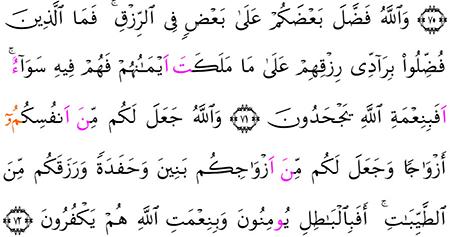 ﴿٧٠﴾ وَاللَّهُ فَضَّلَ بَعْضَكُمْ عَلَىٰ بَعْضٍ فِى الرِّزْقِ ۚ فَمَا الَّذِينَ
فُضِّلُوا۟ بِرَآدِّى رِزْقِهِمْ عَلَىٰ مَا مَلَكَتَ اَيْمَـٰنُهُمْ فَهُمْ فِيهِ سَوَآءٌ ۚ
اَفَبِنِعْمَةِ اللَّهِ يَجْحَدُونَ ﴿٧١﴾ وَاللَّهُ جَعَلَ لَكُم مِّنَ اَنفُسِكُمُۥٓ
أَزْوَٰجًا وَجَعَلَ لَكُم مِّنَ اَزْوَٰجِكُم بَنِينَ وَحَفَدَةً وَرَزَقَكُم مِّنَ
الطَّيِّبَـٰتِ ۚ أَفَبِالْبَـٰطِلِ يُومِنُونَ وَبِنِعْمَتِ اللَّهِ هُمْ يَكْفُرُونَ ﴿٧٢﴾